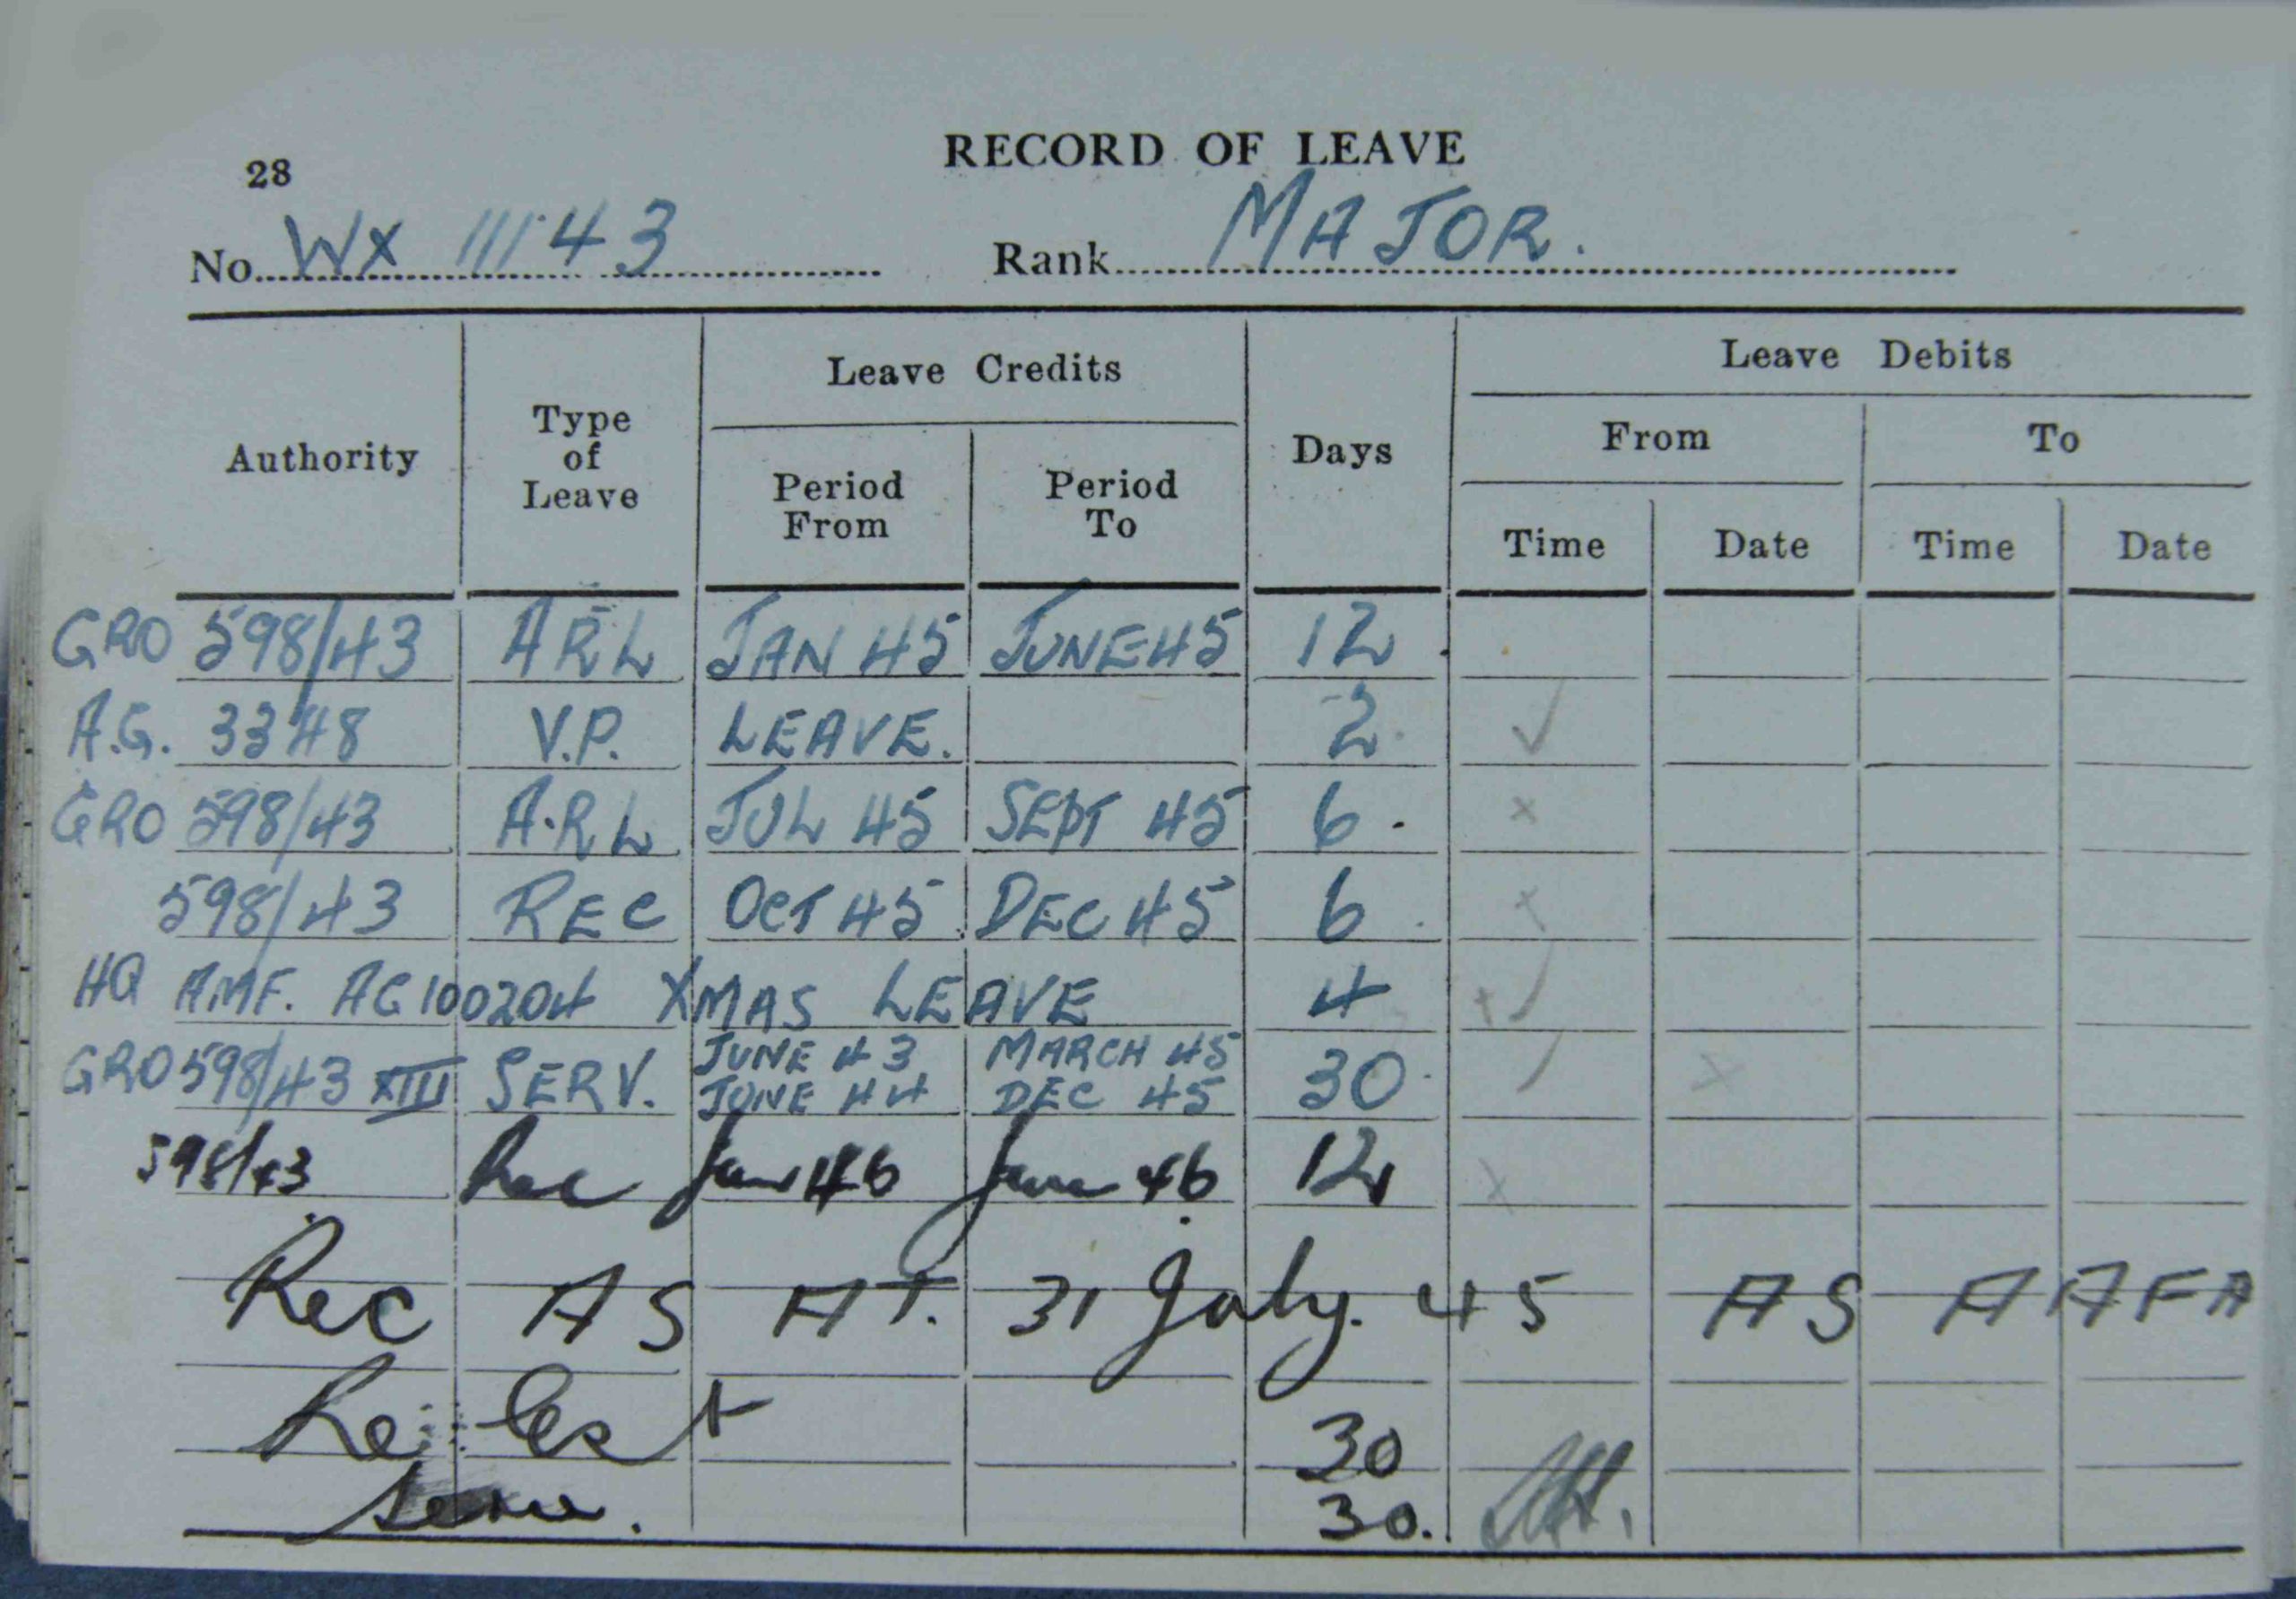 28
RECORD OF LEAVE
No. WX 11143 Rank MAJOR.
Authority Type of Leave Leave Credits Days Leave Debits
Period From Period To From To
Time Date Time Date
GRO 598/43 ARL JAN 45 JUNE 45 12
A.G. 3348 V.P. LEAVE. 2
GRO 598/43 A.R.L JUL 45 SEPT 45 6
598/43 REC OCT 45 DEC 45 6
HQ AMF. AG 100204 XMAS LEAVE 4
GRO 598/43 XIII SERV. JUNE 43 MARCH 45 30
JUNE 44 DEC 45
598/43 Rec Jan 46 June 46 12
Rec AS AT. 31 July. 45 AS A AFA
Re 30
30.